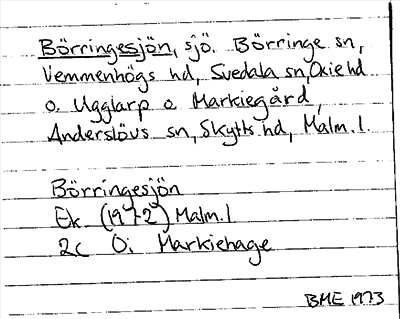 Börringesjön, sjö. Börringe sn,
Vemmenhögs hd, Svedala sn, Oxie hd
o. Ugglarp o Markiegård,
Anderslövs sn, Skytts hd, Malm. l.
Börringesjön
Ek (1972) Malm. l
2c Ö. Markiehage
BME 1973